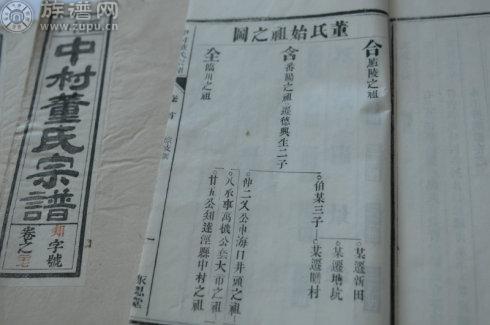 族谱网
www.zupu.cn
中村董氏宗譜
類字號
卷之
董氏始祖之圖
合廬陵之祖
含番陽之祖遷德興生二子
全臨川之祖
伯某三子
某遷新田
某遷塘坑
某遷
村
仲二又公申海口井頭之祖
八承事萬機公套大市之祖
廿五公知達涇縣中村之祖